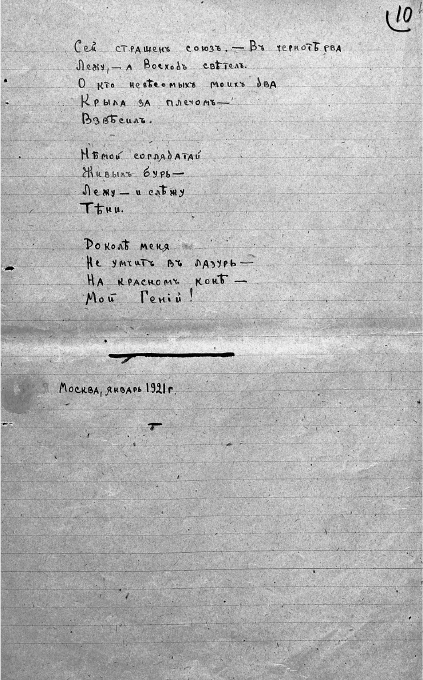 10
Сей страшенъ союзъ. — Въ чернотѣ рва
Лежу, — а Восходъ свѣтелъ.
О кто невѣсомыхъ моихъ два
Крыла за плечомъ —
Взвѣсилъ.
Нѣмой соглядатай
Живыхъ бурь —
Лежу — и слѣжу
Тѣни.
Доколѣ меня
Не умчитъ въ лазурь —
На красномъ конѣ —
Мой Геній!
Москва, январь 1921 г.